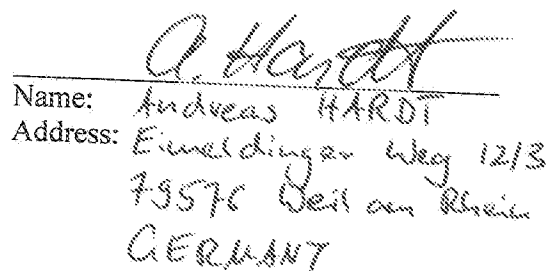 A. Hardt
Name: Andreas HARDT
Address: Eimeldinger Weg 12/3
79576 Weil am Rhein
GERMANY